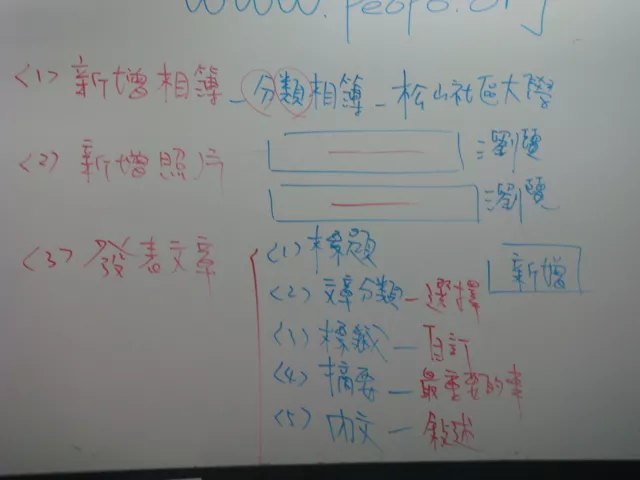 www.peopo.org
<1> 新增相簿 - 分類相簿 - 松山社區大學
<2> 新增照片 瀏覽
瀏覽
<3> 發表文章 <1> 標題
新增
<2> 文章分類 - 選擇
<3> 標籤 - 自訂
<4> 摘要 - 最重要的事
<5> 內文 - 敘述